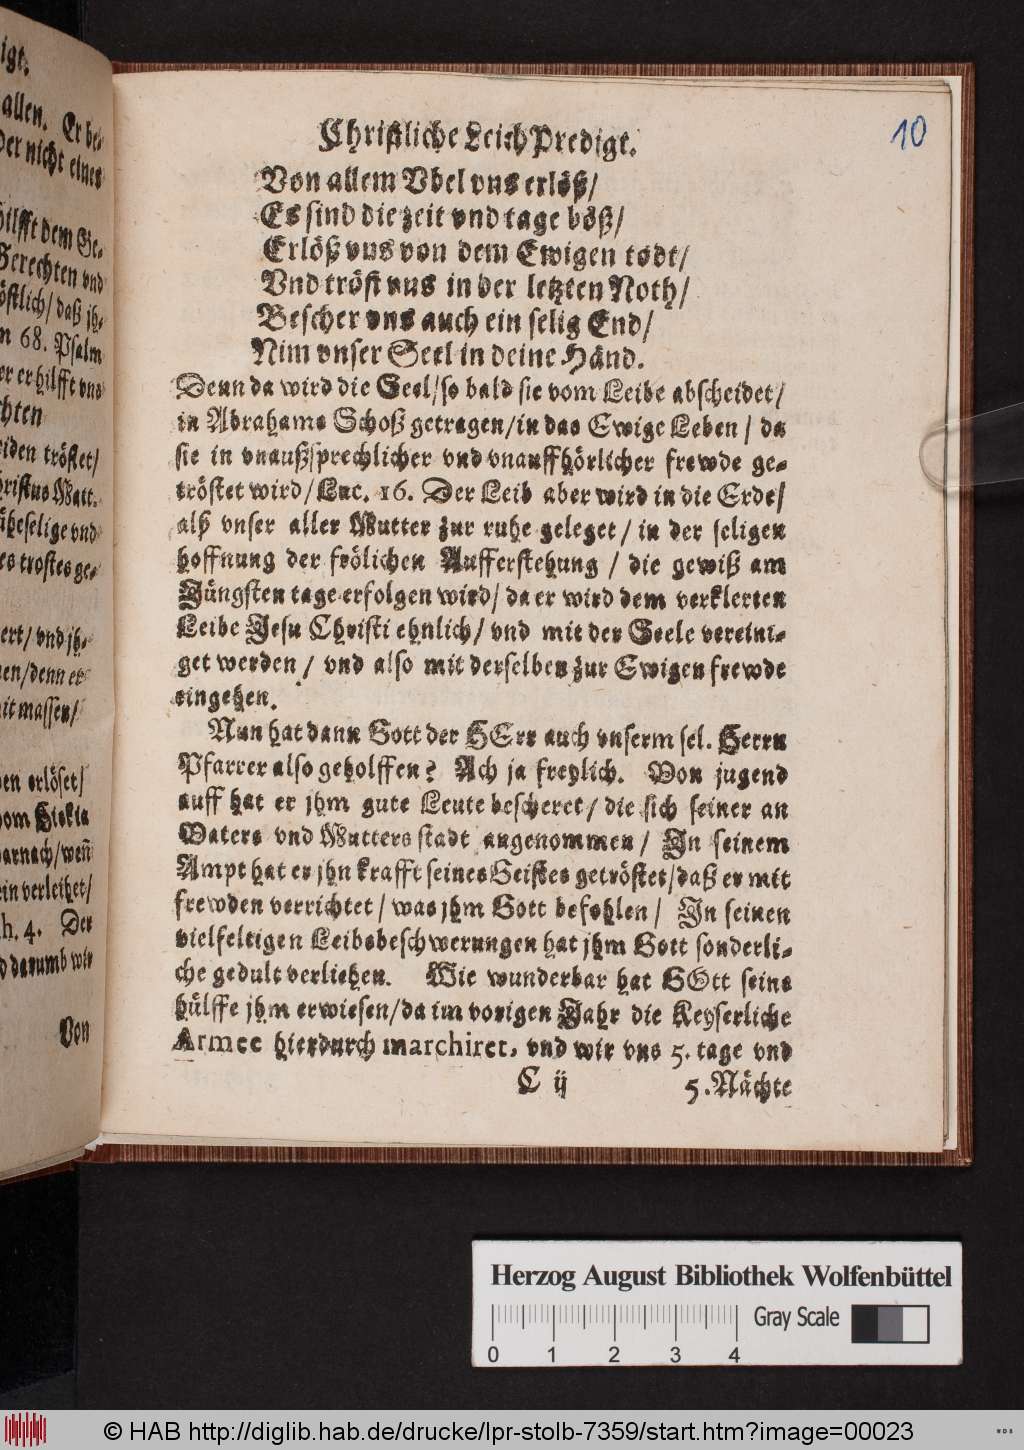 igt.
allen. Er be-
der nicht eines
hilfft dem Ge-
Gerechten vnd
östlich/daß jh-
n 68. Psalm
er er hilfft vns
chten
eiden tröstet/
hristus Matt.
es trostes ge-
ert/ vnd jh-
en/denn er
it massen/
en erlöset/
vom Hiskia
arnach/weñ
ein verleihet/
h. 4. Der
d darumb wir
Von
10
Christliche LeichPredigt.
Von allem Vbel vns erlöß/
Es sind die zeit vnd tage böß/
Erlöß vns von dem Ewigen todt/
Vnd tröst vns in der letzten Noth/
Bescher vns auch ein selig End/
Nim vnser Seel in deine Händ.
Denn da wird die Seel/so bald sie vom Leibe abscheidet/
in Abrahams Schoß getragen/in das Ewige Leben/ da
sie in vnaußsprechlicher vnd vnauffhörlicher frewde ge-
tröstet wird/Luc. 16. Der Leib aber wird in die Erde/
alß vnser aller Mutter zur ruhe geleget/ in der seligen
hoffnung der frölichen Aufferstehung / die gewiß am
Jüngsten tage erfolgen wird/ da er wird dem verklerten
Leibe Jesu Christi ehnlich/ vnd mit der Seele vereini-
get werden / vnd also mit derselben zur Ewigen frewde
eingehen.
Nun hat dann Gott der HErr auch vnserm sel. Herrn
Pfarrer also geholffen? Ach ja freylich. Von jugend
auff hat er jhm gute Leute bescheret/ die sich seiner an
Vaters vnd Mutters stadt angenommen/ In seinem
Ampt hat er jhn krafft seines Geistes getröstet/daß er mit
frewden verrichtet/ was jhm Gott befohlen/ In seinen
vielfeltigen Leibsbeschwerungen hat jhm Gott sonderli-
che gedult verliehen. Wie wunderbar hat GOtt seine
hülffe jhm erwiesen/da im vorigen Jahr die Keyserliche
Armee hierdurch marchiret, vnd wir vns 5. tage vnd
C ij 5. Nächte
Herzog August Bibliothek Wolfenbüttel
Gray Scale
0 1 2 3 4
© HAB http://diglib.hab.de/drucke/lpr-stolb-7359/start.htm?image=00023